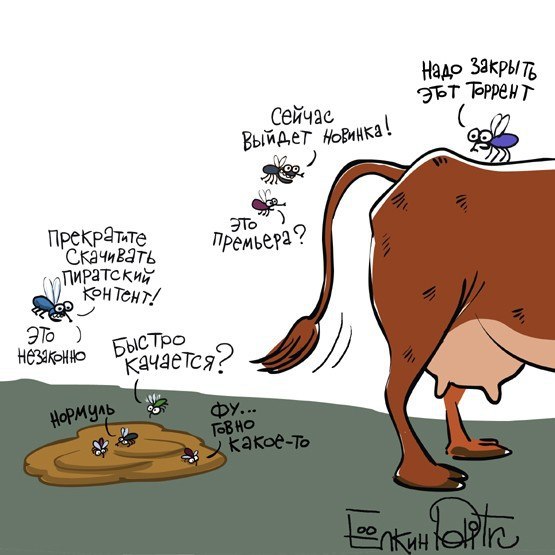 Надо закрыть
этот торрент
Сейчас
выйдет новинка!
это
премьера?
Прекратите
скачивать
пиратский
контент!
это
незаконно
Быстро
качается?
нормуль
Фу...
говно
какое-то
Ёлкин